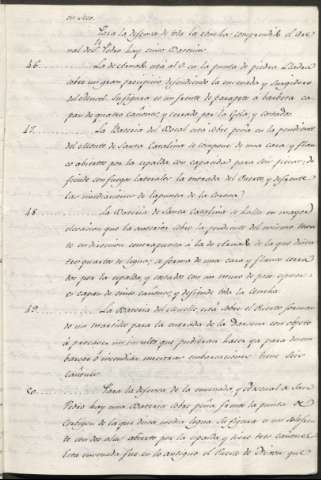 en seco.
Para la defensa de toda la concha, comprendido el Arse-
nal de Sn. Pedro hay cinco Baterias.
46. La de está al O. en la punta de piedra
sobre un gran precipicio, defendiendo la ensenada y surgidero
su figura es un frente de parapeto a barbeta ca-
paz de quatro cañones, y cerrado por la Gola, y costados
47. La Bateria del está sobre peña en la pendiente
del Monte de Santa Catalina se compone de una cara y flan-
co abierto por la espalda con capacidad para seis piezas; de-
fiende con fuegos laterales la entrada del Puerto, y de frente
las inmediaciones de la punta de la Corona.
48. La Bateria de Santa Catalina se halla en mayor
elevacion que la anterior sobre la pendiente del mismo Mon-
te en direccion contrapuesta à la de de la que dista
tres quartos de legua; se forma de una cara y flanco cerra-
dos por la espalda y costados con un muro de poco espesor
es capaz de cinco cañones, y defiende toda la Concha
49. La Bateria del Muelle, está sobre el Puerto forman-
do un martillo para la entrada de la Darsena con objeto
à precaver un insulto que pudieran hacer ya para desem-
barcar ó incendiar nuestras embarcaciones: tiene seis
cañones.
50. Para la defensa de la ensenada y Arsenal de San
Pedro hay una Bateria sobre peña, forma la punta de
de la que dista media legua. Su figura es un
con dos alas abierto por la espalda y tiene tres cañones.
Esta ensenada fue en lo antiguo el Puerto de que